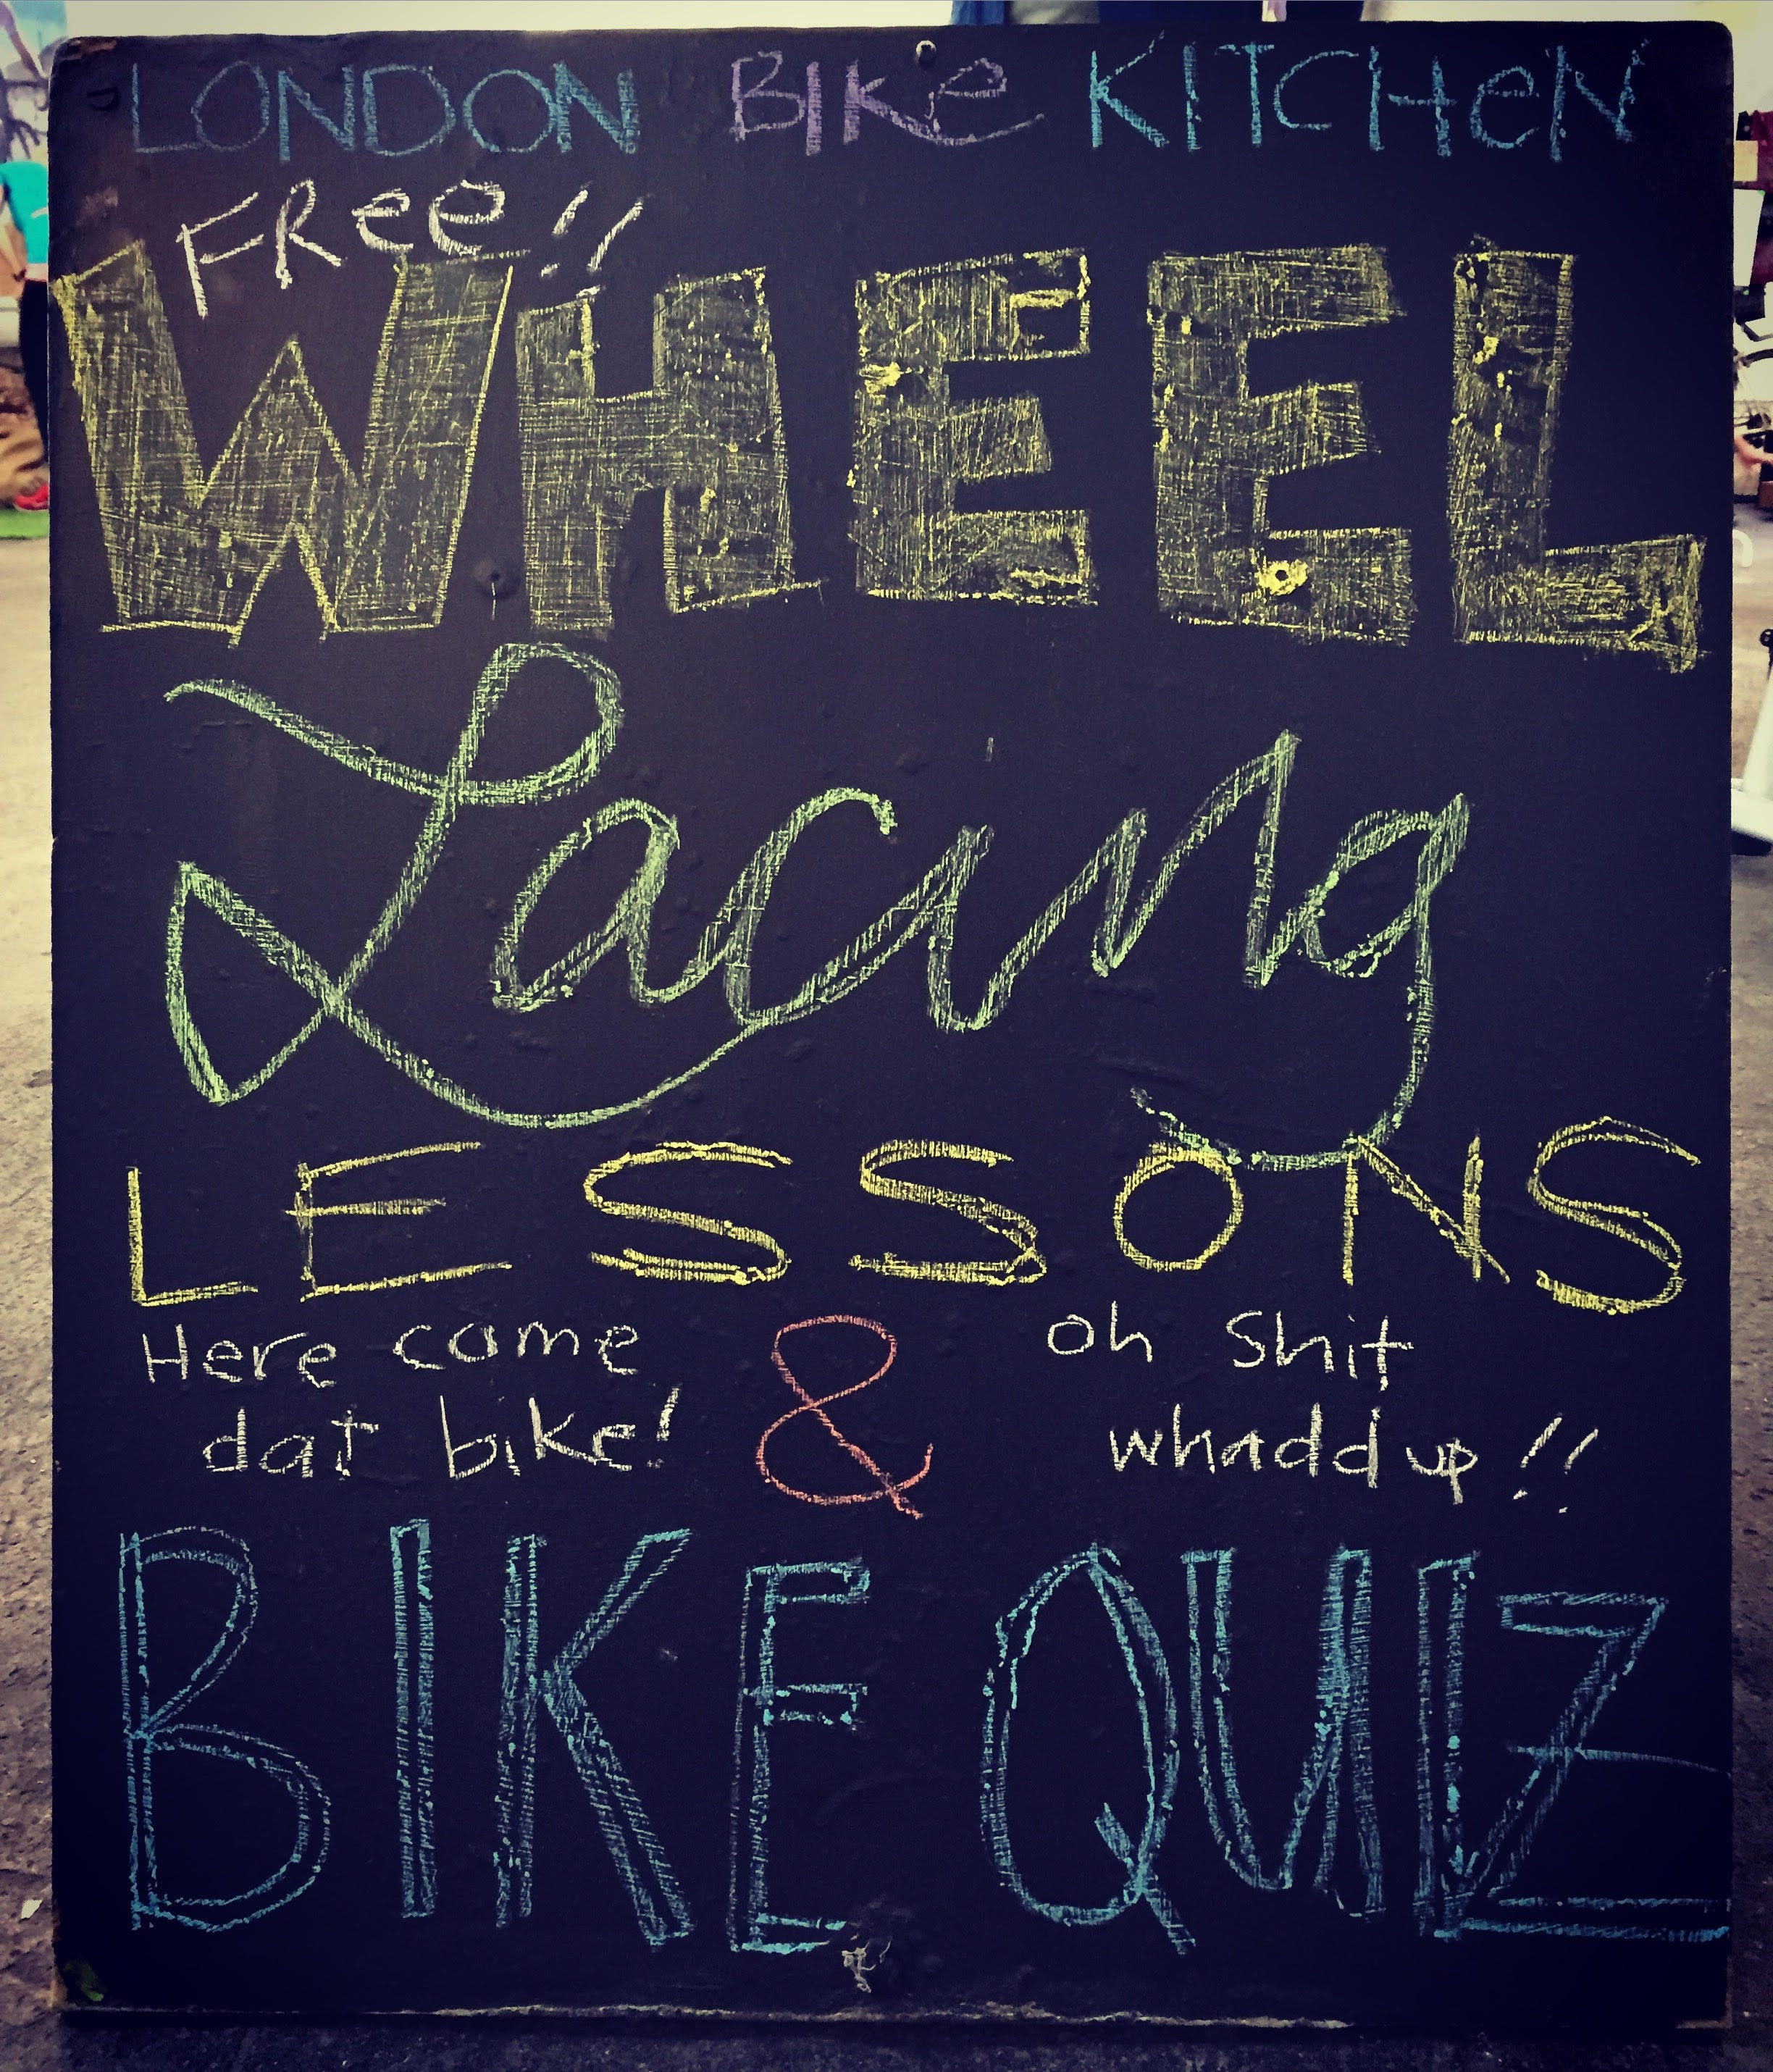 LONDON BIKe KITCHeN
FRee!!
WHEEL
Lacing
LESSONS
Here come
dat bike!
&
oh Shit
whadd up!!
BIKE QUIZ